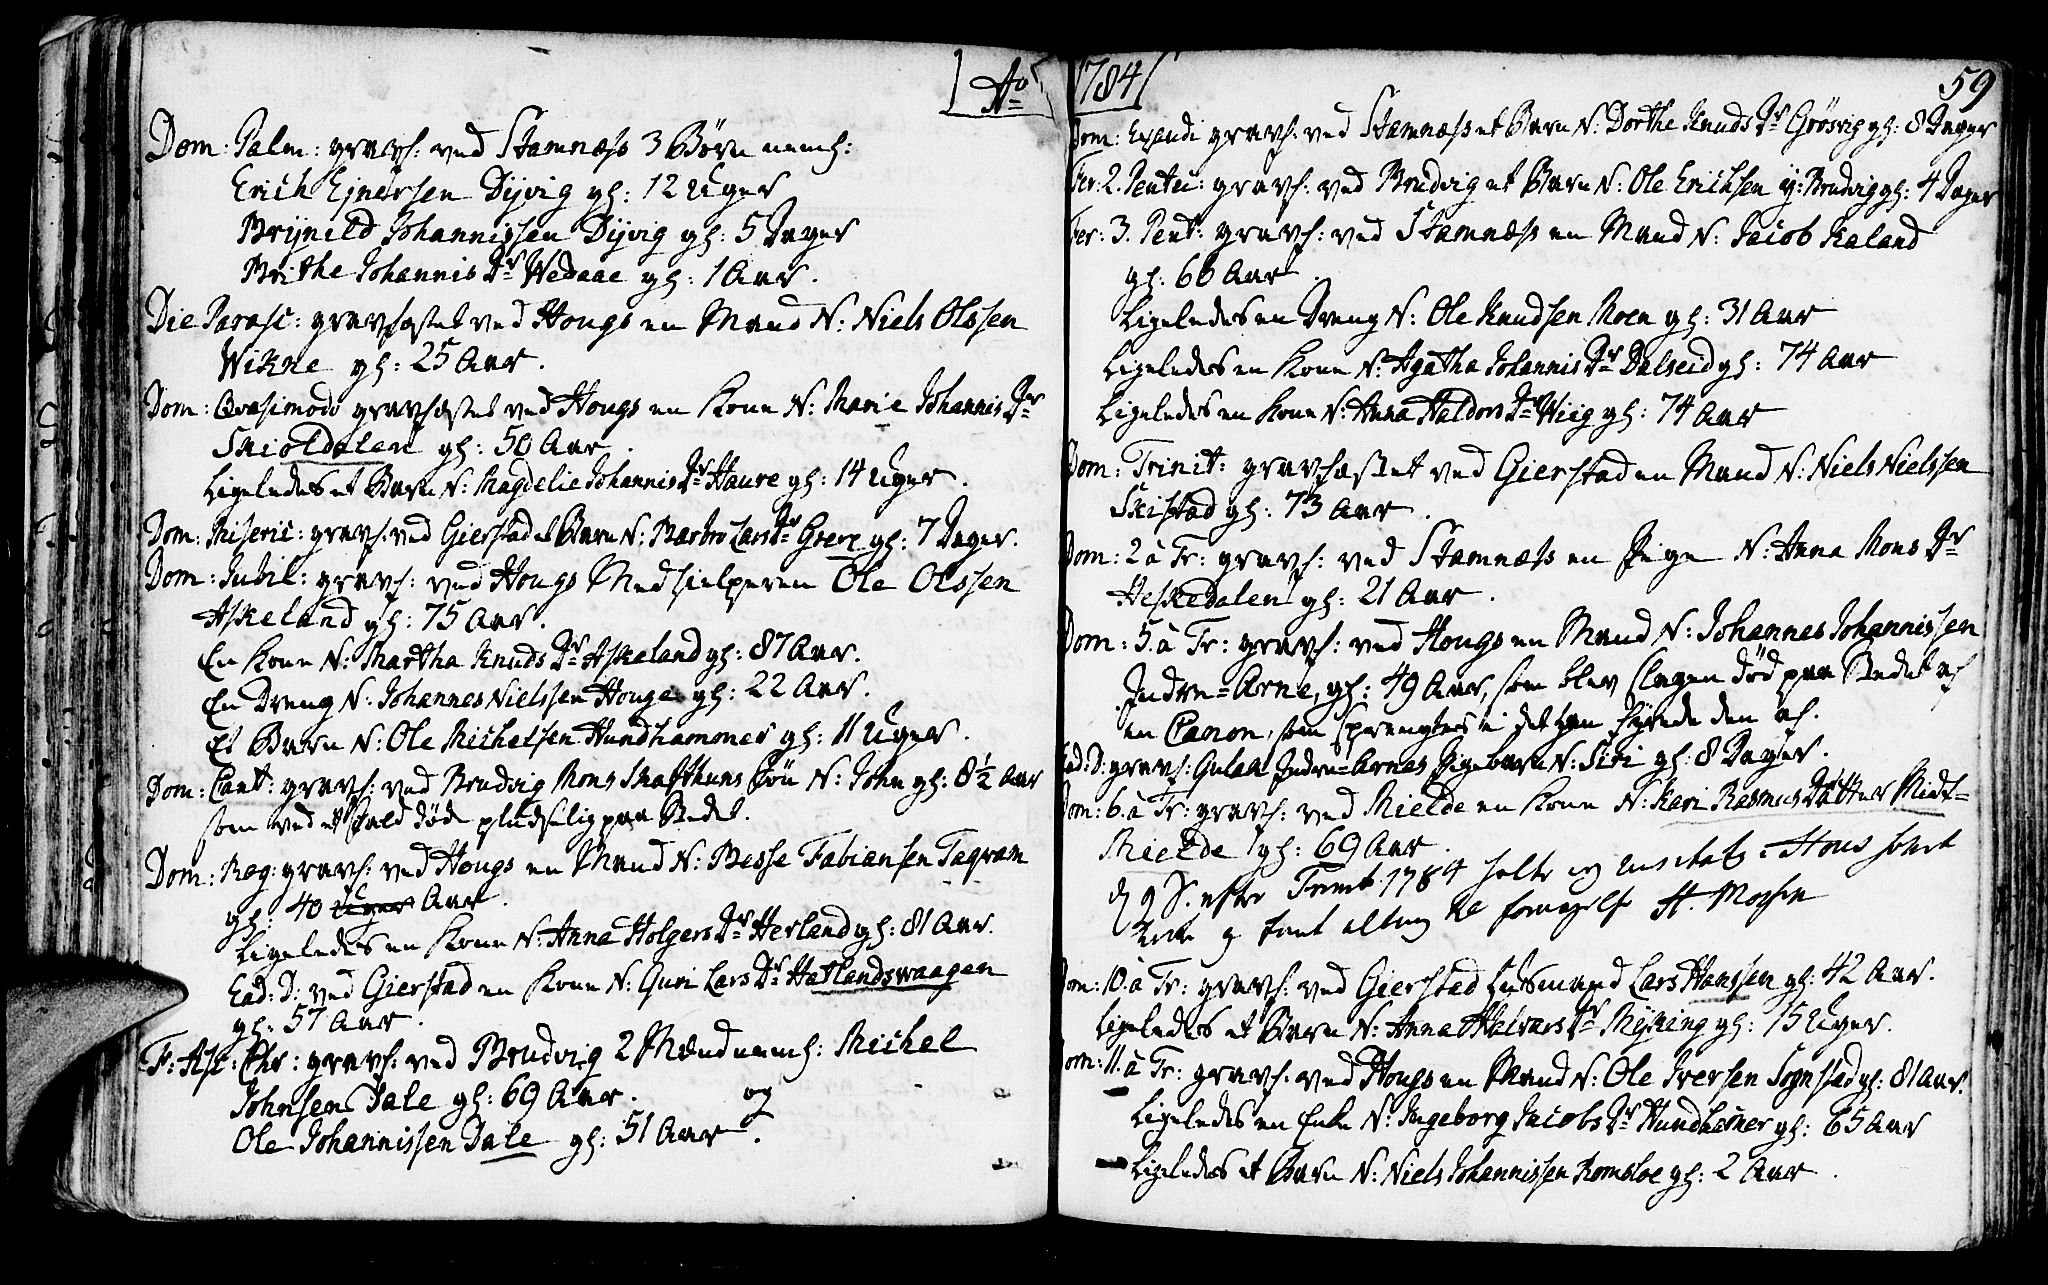 Ao 1784
59
Dom: Palm: gravf: ved Stamnæss 3 Børn nemb:
Erich Ejnersen Dyvig gl: 12 Uger
Brynild Johannissen Dyvig gl: 5 Dager
Brithe Johannis Dr Wedaae gl: 1 Aar.
Die Parasc: gravfæstet ved Hougs en Mand N: Niels Olssen
Wikne gl: 25 Aar.
Dom: Qvasimodo gravfæstet ved Hougs en Kone N: Marie Johannis Dr
Skioldalen gl: 50 Aar.
Ligeledes et Barn N: Magdelie Johannis Dr Haure gl: 14 Uger.
Dom: Miseric: gravf: ved Gierstad et Barn N: Barbro Lars Dr Grere gl: 7 Dager.
Dom: Jubil: gravf: ved Hougs Medhielperen Ole Olssen
Askeland gl: 75 Aar.
En Kone N: Martha Knuds Dr Askeland gl: 87 Aar.
En Dreng N: Johannes Nielssen Houge gl: 22 Aar.
Et Barn N: Ole Michelsen Hundhammer gl: 11 Uger.
Dom: Cant: gravf: ved Brudvig Mons Skafthuns Søn N: John gl: 8½ Aar
som ved et Fald døde pludselig paa Stedet.
Dom: Rog: gravf: ved Hougs en Mand N: Besse Fabiansen Taqvam
gl: 40 Uger Aar.
Ligeledes en Kone N: Anna Holgers Dr Herland gl: 81 Aar.
Ead: D: ved Gierstad en Kone N: Guri Lars Dr Hatlandswaagen
gl: 57 Aar.
F: Asc: Chr: gravf: ved Brudvig 2 Mænd nemb: Michel
Johnsen Dale gl: 69 Aar. og
Ole Johannissen Dale gl: 51 Aar.
Dom: Exaudi gravf: ved Stamnæss et Barn N: Dorthe Knuds Dr Giøsvig gl: 8 Dager
Fer: 2. Pentec: gravf: ved Brudvig et Barn N: Ole Erichsen y: Brudvig gl: 4 Dager
Fer: 3. Pent: gravf: ved Stamnæss en Mand N: Jacob Kaland
gl: 66 Aar.
Ligeledes en Dreng N: Ole Knudsen Moen gl: 31 Aar
Ligeledes en Kone N: Agatha Johannis Dr Dalseid gl: 74 Aar
Ligeledes en Kone N: Anna Haldors Dr Wiig gl: 74 Aar
Dom: Trinit: gravfæstet ved Gierstad en Mand N: Niels Nielssen
Skistad gl: 73 Aar.
Dom: 2 à Tr: gravf: ved Stamnæss en Pige N: Anna Mons Dr
Heskedalen gl: 21 Aar.
Dom: 5. à Tr: gravf: ved Hougs en Mand N: Johannes Johannissen
Indre-Arne, gl: 49 Aar, som blev slagen død paa Stedet af
en Canon, som sprengtes i det han fyrede den af.
Ead: D: gravf: Gulak Indre-Arnes Pigebarn N: Siri gl: 8 Dager.
Dom: 6. à Tr: gravf: ved Mielde en Kone N: Kari Rasmus Datter Midt-
Mielde gl: 69 Aar.
d 9 S. efter Trinit. 1784 holte jeg visitats i Hous hoved
Kirke og fant alting til fornøyelse
Dom: 10. à Tr: gravf: ved Gierstad Husmand Lars Hanssen gl: 42 Aar.
Ligeledes et Barn N: Anna Halvars Dr Myking gl: 15 Uger.
Dom: 11. à Tr: gravf: ved Hougs en Mand N: Ole Iversen Sognstad gl: 81 Aar.
Ligeledes en Enke N: Ingeborg Jacobs Dr Hundhamer gl: 65 Aar
Ligeledes et Barn N: Niels Johannissen Romsloe gl: 2 Aar.